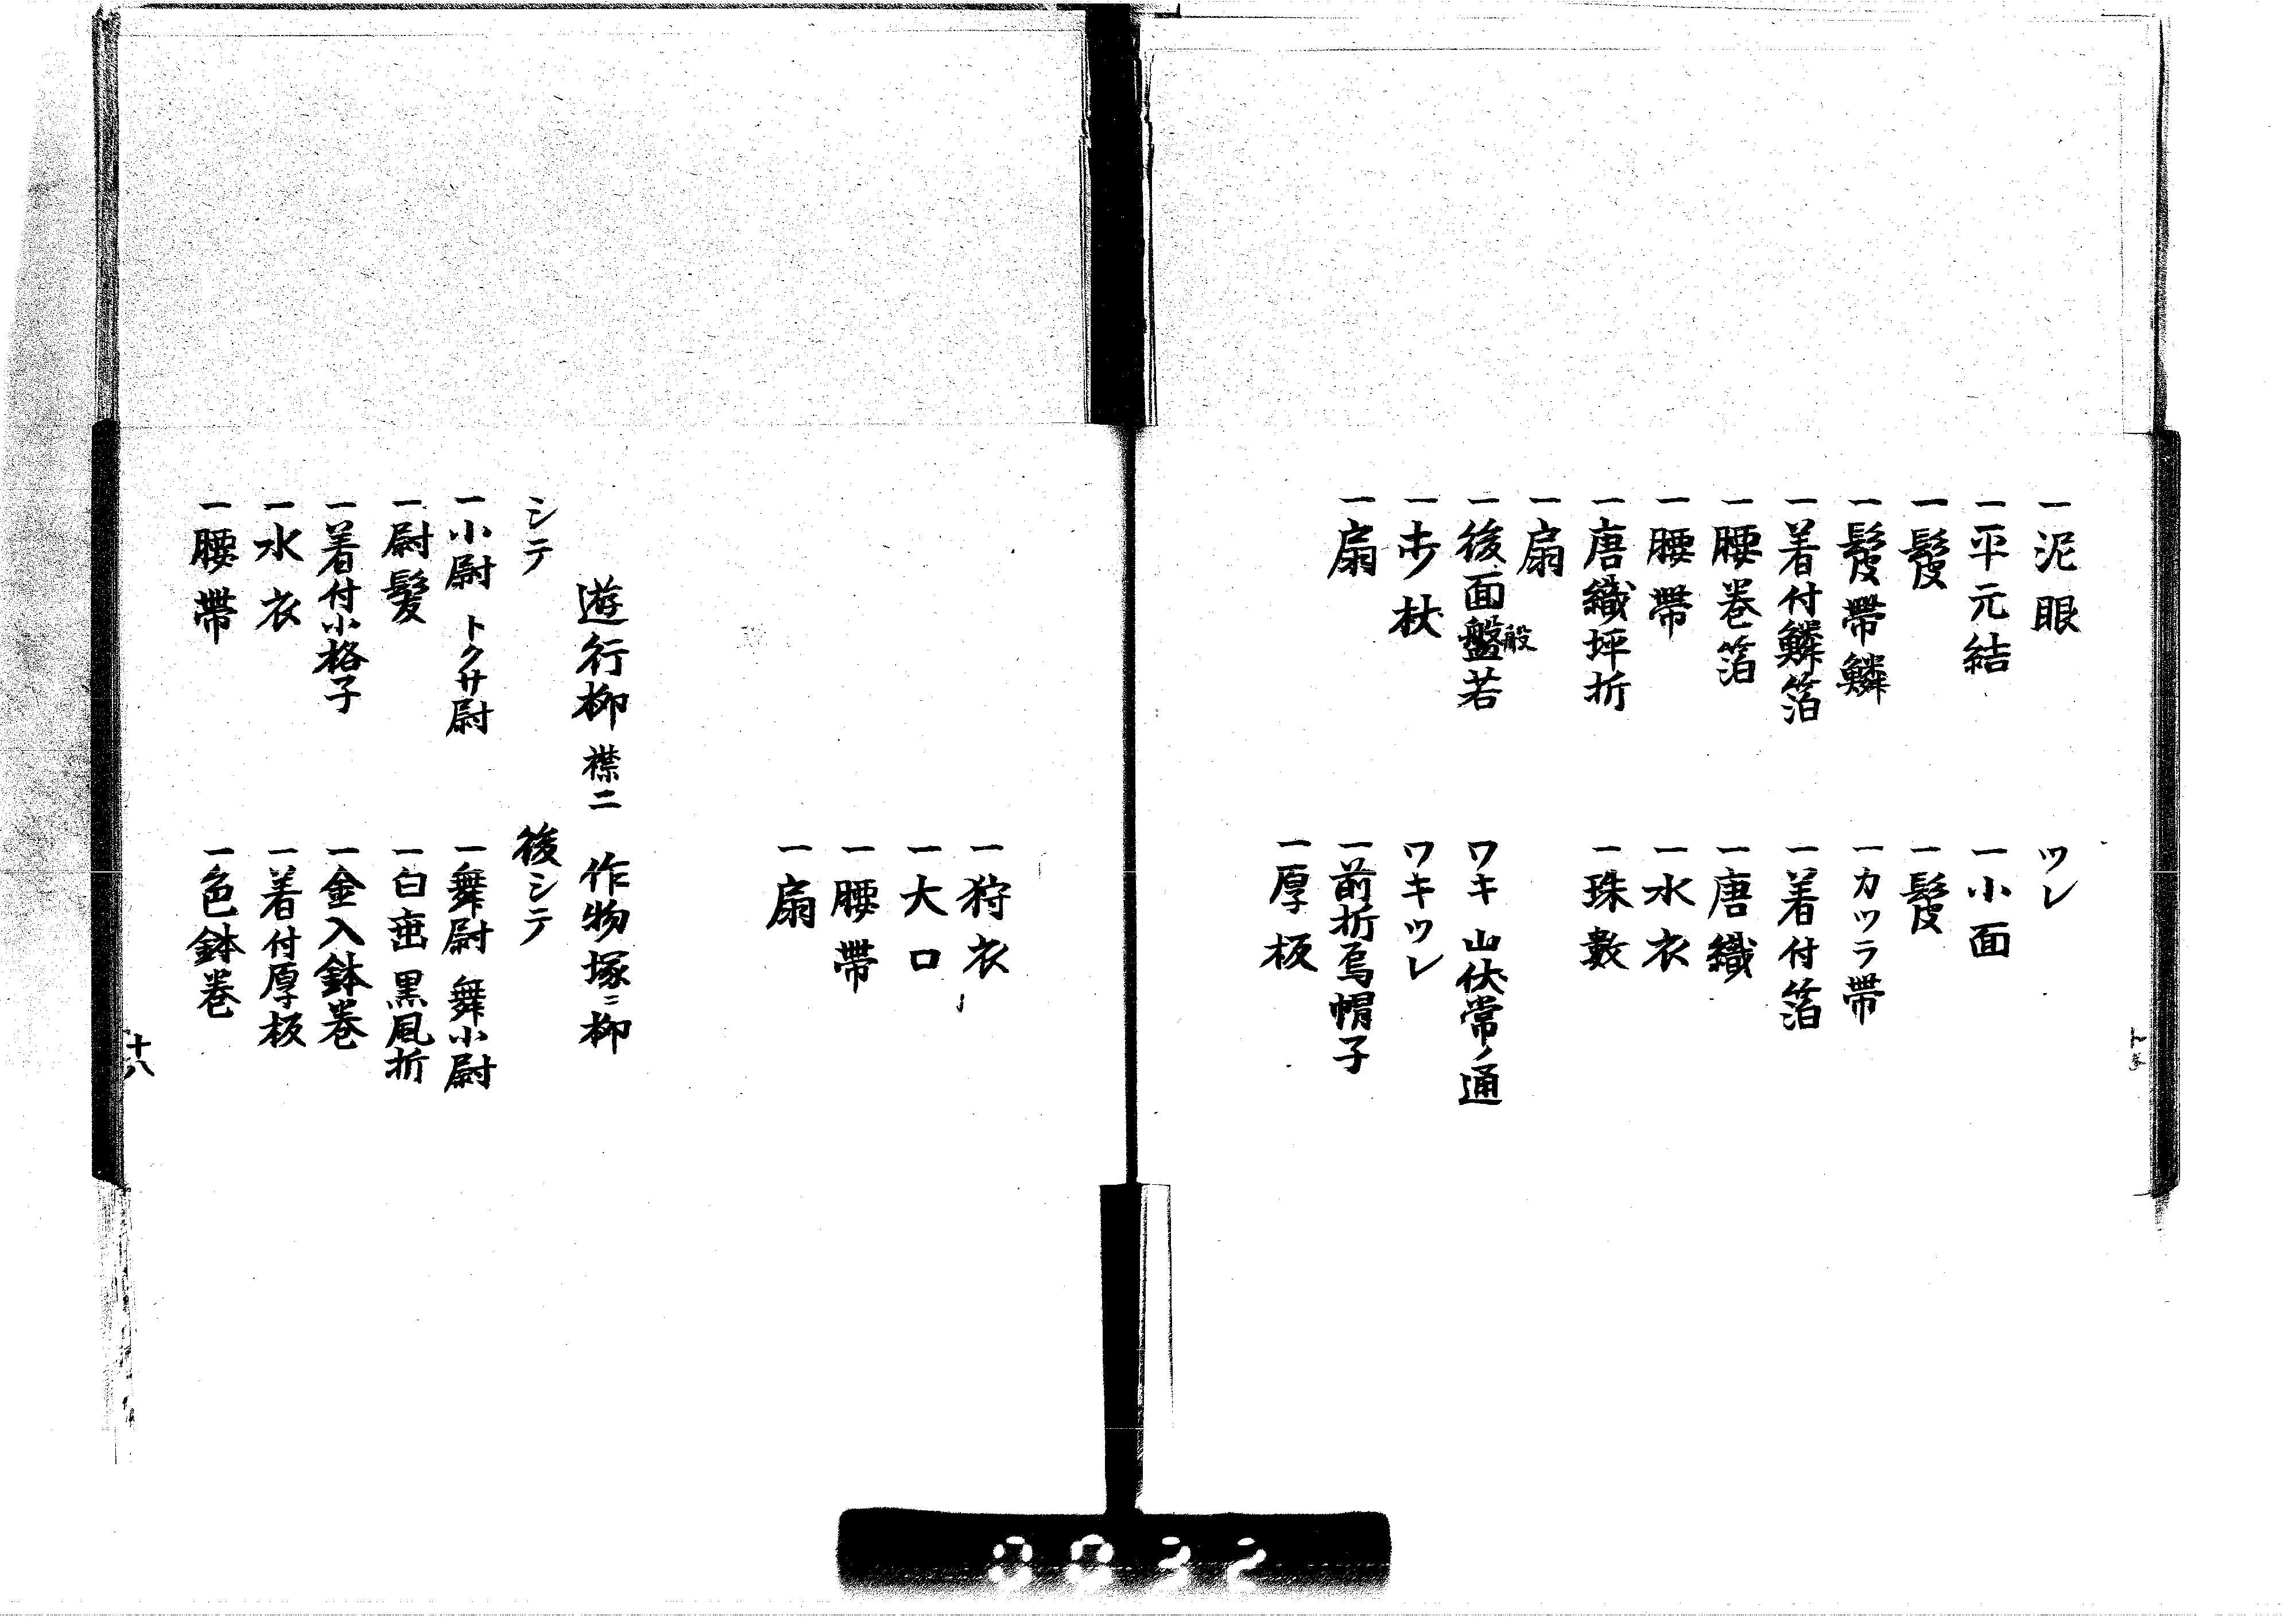 一泥眼
一平元結
一鬘
一鬘帯鱗
一着付鱗箔
一腰巻箔
一腰帯
一唐織坪折
一扇
一後面盤若
般
一歩杖
一扇
ツレ
一小面
一鬘
一カツラ帯
一着付箔
一唐織
一水衣
一珠數
ワキ 山伏常ノ通
ワキツレ
一前折烏帽子
一厚板
一狩衣
一大口
一腰帯
一扇
遊行柳 襟二 作物塚ニ柳
シテ
一小尉 トクサ尉
一尉髪
一着付小格子
一水衣
一腰帯
後シテ
一舞尉 舞小尉
一白垂 黒風折
一金入鉢巻
一着付厚板
一色鉢巻
十八